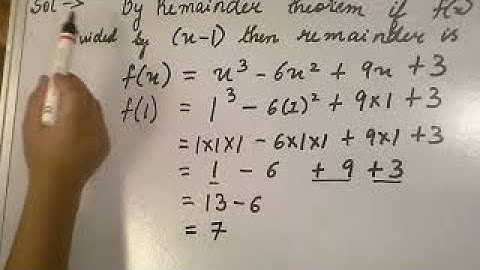 Sol → By Remainder theorem if f(x)
vided by (x-1) then remainder is
f(x) = x³ - 6x² + 9x + 3
f(1) = 1³ - 6(1)² + 9×1 + 3
= 1×1×1 - 6×1×1 + 9×1 + 3
= 1 - 6 + 9 + 3
= 13 - 6
= 7